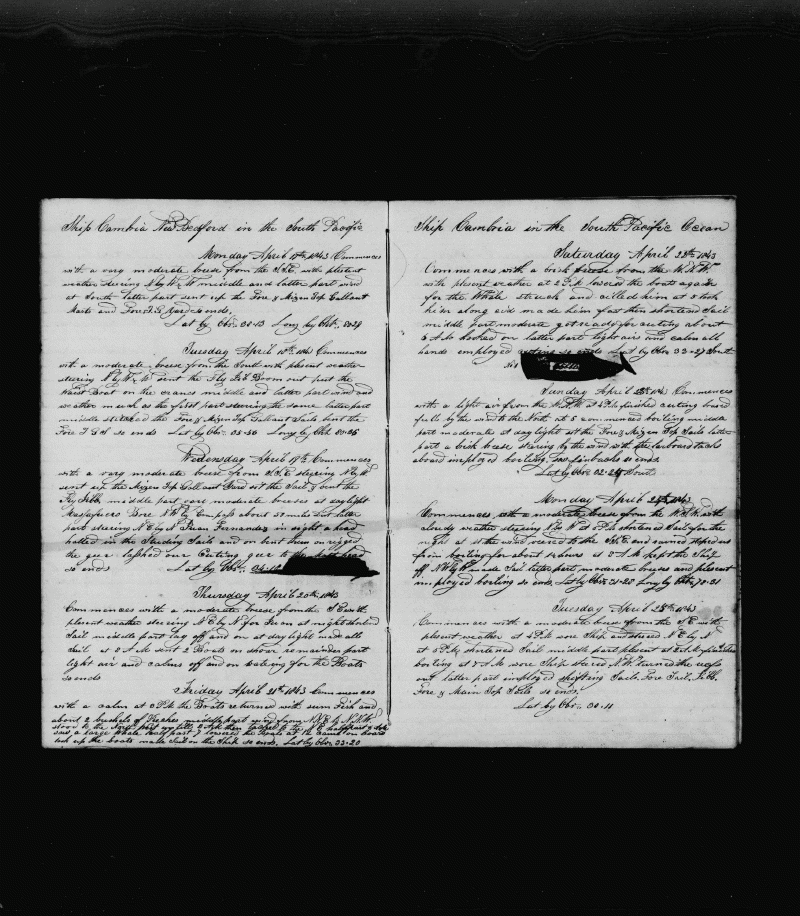 Ship Cambria New Bedford in the South Pacific
Monday April 17th 1843 Commences
with a vary moderate breese from the S.E. with plesent
weather steering N by W. W middle and latter part wind
at South latter part sent up the Fore & Mizen Top Gallant
Masts and Fore T.G. Yard so ends
Lat by Obr.
Tuesday April 18th 1843 Commences
with a moderate breese from the South with plesent weather
steering N by W. W sent the Fly Jib Boom out put the
Waist Boat on the cranes middle and latter part wind and
weather much as the first part steering the same latter part
middle stitched the Fore & Mizen Top Gallant Sails bent the
Fore T G S so ends Lat by Obr. Long by Chr 80-26
Wednesday April 19th Commences
with a vary moderate breese from S.S.E. steering N by W
sent up the Mizen Top Gallant Yard bent the Sail & bent the
Fly Jibb middle part vary moderate breeses at daylight
Masafuero Bore by Compass about 50 miles Dist latter
part steering N E by N Juan Fernandes in sight a head
hailed in the Studing Sails and on bent them on rigged
the geer lashed our Cutting geer to the
so ends Lat by Obr.
Thursday April 20th 1843
Commences with a moderate breese from the S E with
plesent weather steering N E by N for Juan at night shortend
Sail middle part lay off and on at daylight made all
Sail at 8 A M sent 2 Boats on shore remainder part
light air and calms off and on waiting for the Boats
so ends
Friday April 21st 1843 Commences
with a calm at 2 P.M the Boats returned with sum Fish and
about 2 bushels of Peaches middle part wind from N.E by N
saw a large Whale lowered the Boats at the came on board
took up the boats made Sail on the Ship so ends Lat by Obr 33-20
Ship Cambria in the South Pacific Ocean
Saturday April 22th 1843
Commences with a brisk breese from the W.N.W.
with plesent weather at 2 P.M lowered the boats again
for the Whale struck and cilled him at 5 took
him along side made him fast then shortend Sail
middle part moderate got ready for cutting about
6 A.M hooked on latter part light airs and calm all
hands employed cutting so ends Lat by Obr 33-27 South
No 1
Sunday April 23th 1843 Commences
with a light air from the W.N.W at 4 P.M finished cutting board
full by the wind to the North at 5 commenced boiling middle
part moderate at daylight set the Fore & Mizen Top Sails latter
part a brisk breese stearing by the wind with the larboard tacks
aboard imployed boiling saw finbacks so ends
Lat by Obr 32-24 South
Monday April 24th 1843
Commences with a moderate breese from the W.S.W. with
cloudy weather steering N by W at 6 P.M. shortened Sail for the
night at 12 the wind veered to the S.E and earned stop'd us
from boiling for about 12 hours at 5 A.M kept the Ship
off N W by W made Sail latter part moderate breeses and plesent
imployed boiling so ends. Lat by Obr. 31-25 Long by Chr. 78-21
Tuesday April 25th 1843
Commences with a moderate breese from the S E with
plesent weather at 4 P.M wore Ship and steered N E by N
at 6 P.M. shortened Sail middle part plesent at 2 A.M finished
boiling at 7 A.M wore Ship steered N.W. turned the
out latter part imployed shifting Sails Fore Sail, Jibb,
Fore & Main Top Sails so ends.
Lat by Obr. 30-11